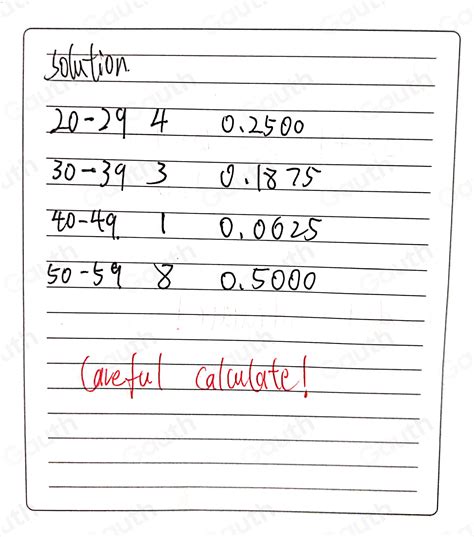 solution
20-29 4 0.2500
30-39 3 0.1875
40-49 1 0.0625
50-59 8 0.5000
Careful calculate!